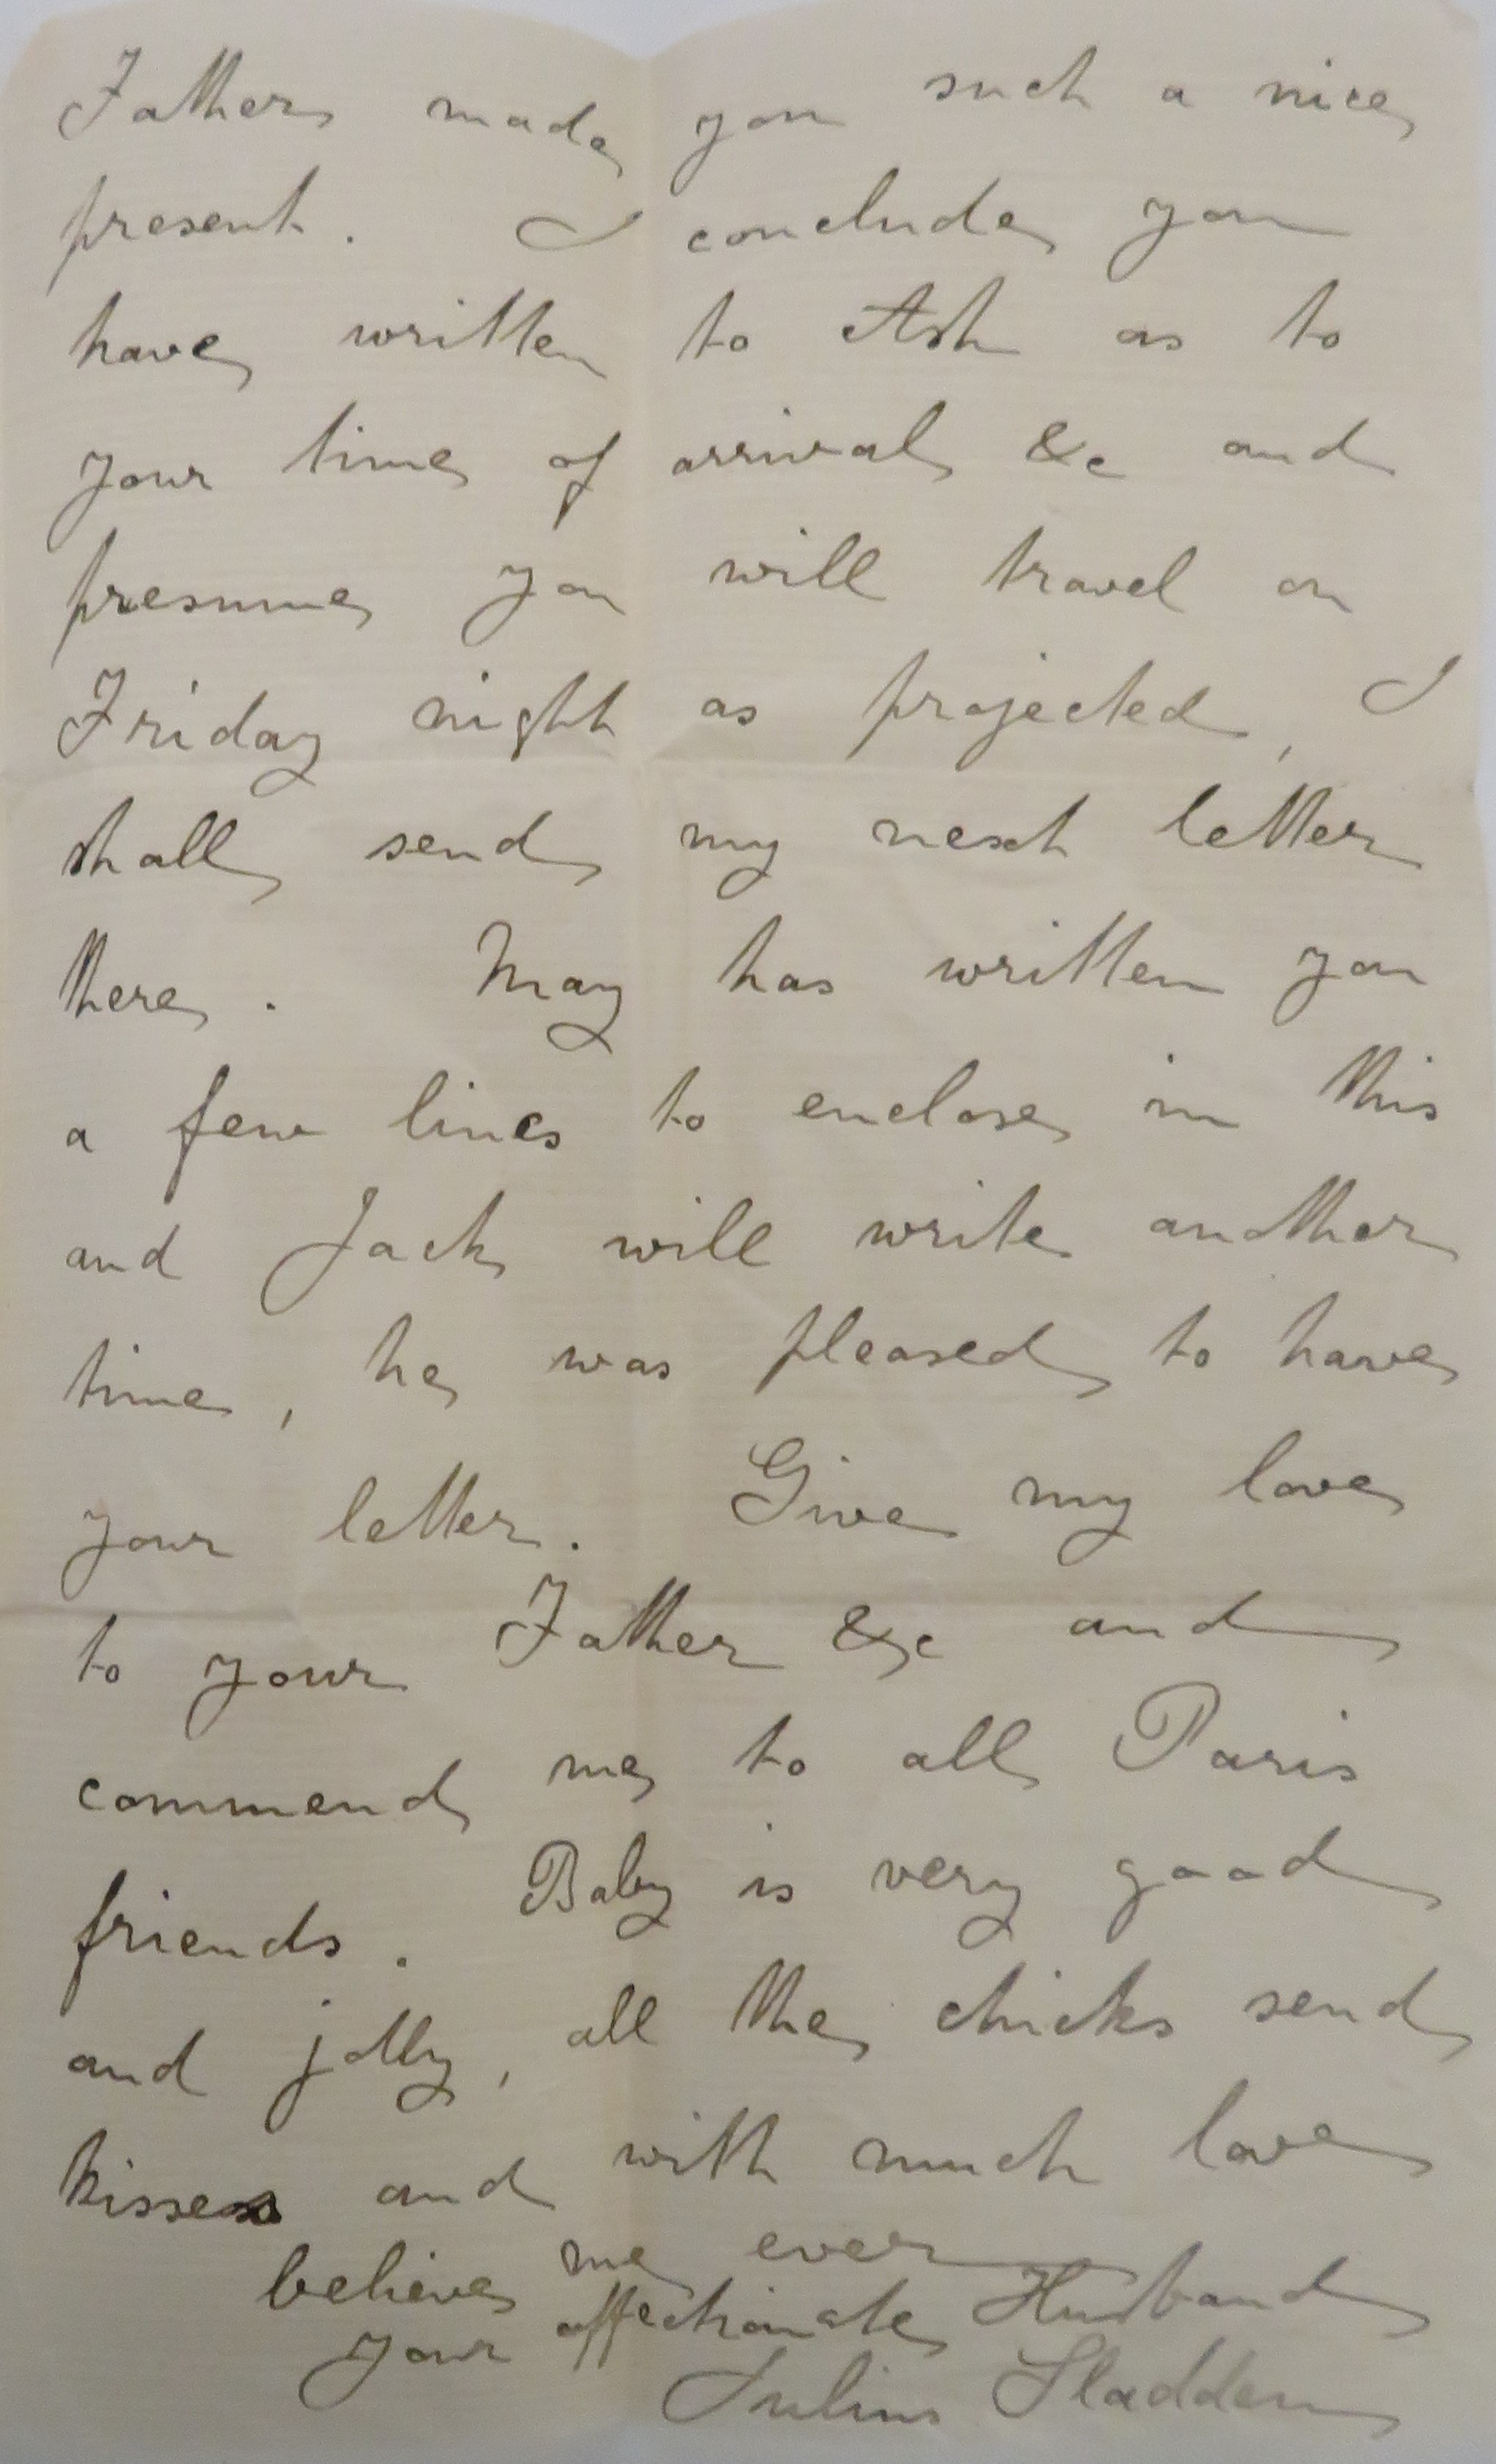 Father made you such a nice
present. I conclude you
have written to Ash as to
your time of arrival &c and
presume you will travel on
Friday night as projected, I
shall send my next letter
there. May has written you
a few lines to enclose in this
and Jack will write another
time, he was pleased to have
your letter. Give my love
to your Father &c and
commend me to all Paris
friends. Baby is very good
and jolly, all the chicks send
kisses and with much love
believe me ever
your affectionate Husband
Julius Sladden